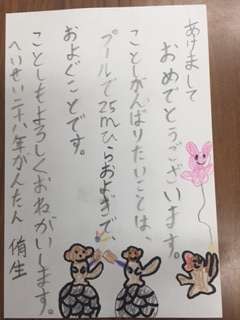 あけまして
おめでとうございます。
ことしがんばりたいことは、
プールで25mひらおよぎで、
およぐことです。
ことしもよろしくおねがいします。
へいせい二十八年がんたん 侑生